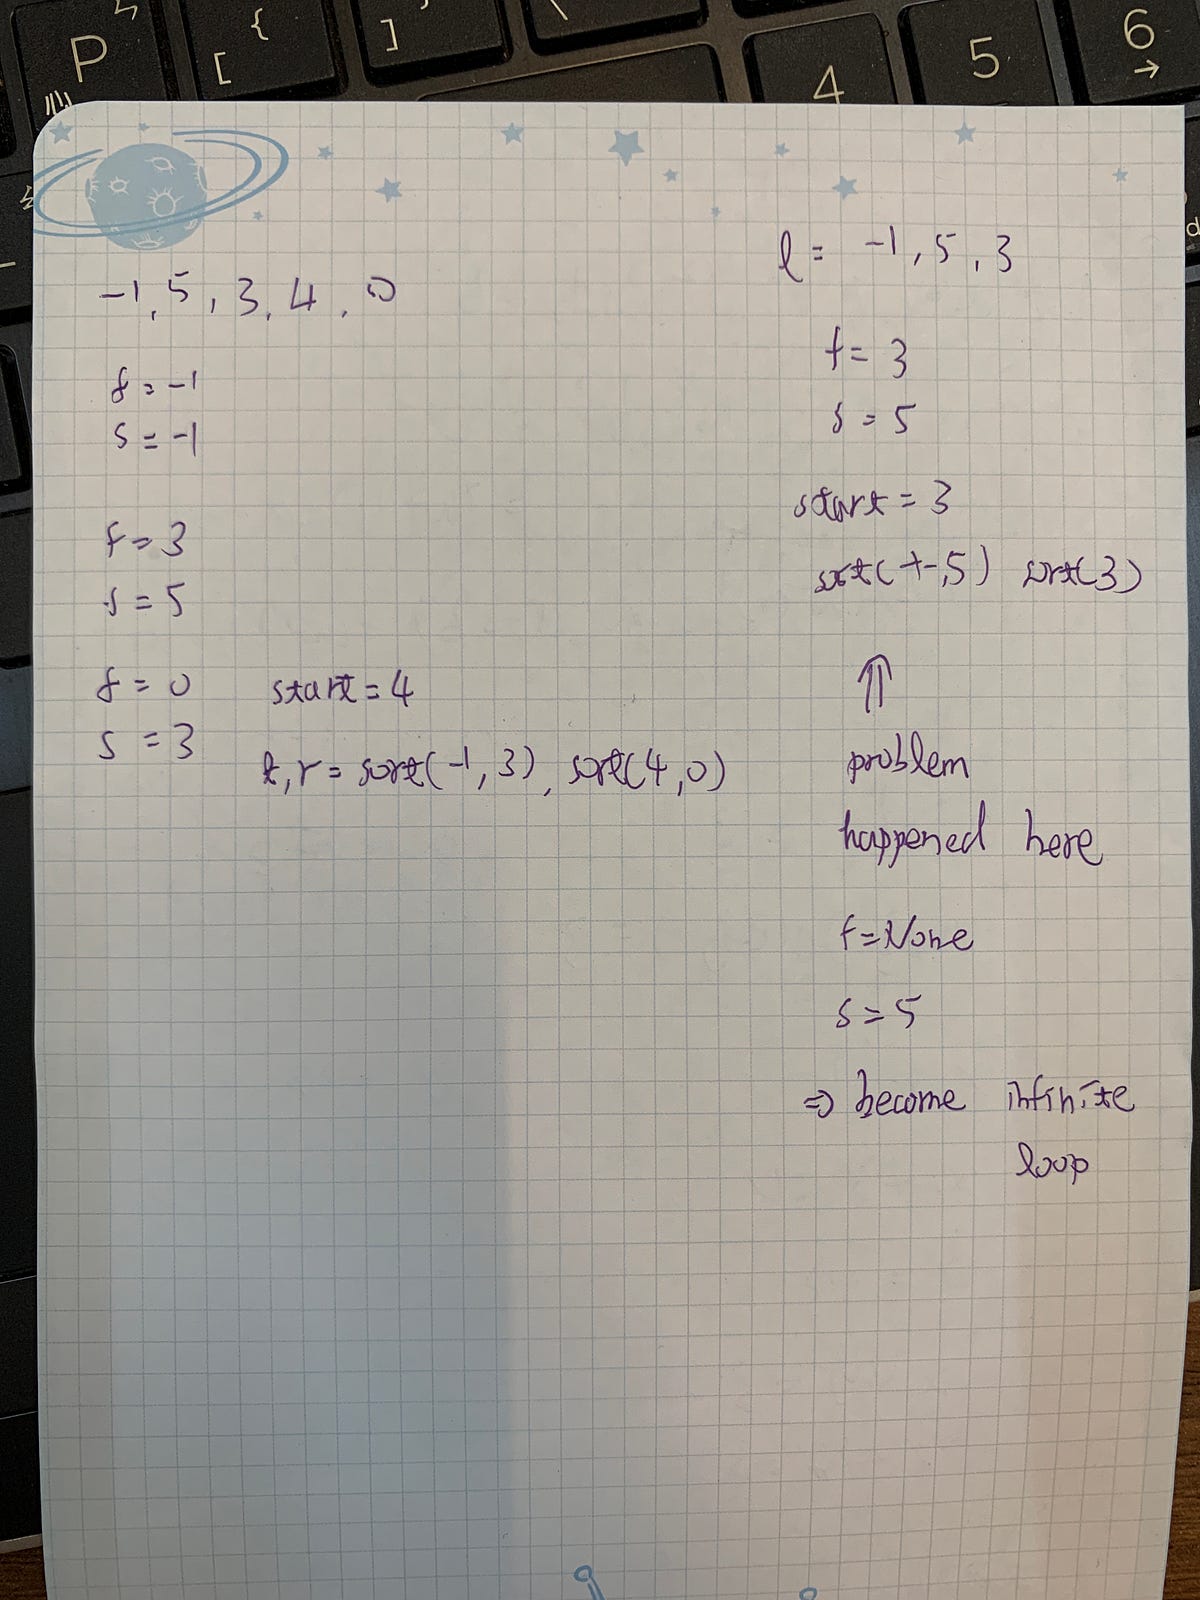 P
{
[
]
\
4
5
6
→
-1, 5, 3, 4, 0
f = -1
s = -1
f = 3
s = 5
f = 0 start = 4
s = 3
l, r = sort(-1, 3), sort(4, 0)
l = -1, 5, 3
f = 3
s = 5
start = 3
sort(-1, 5) sort(3)
⇑
problem
happened here
f = None
s = 5
⇒ become infinite
loop